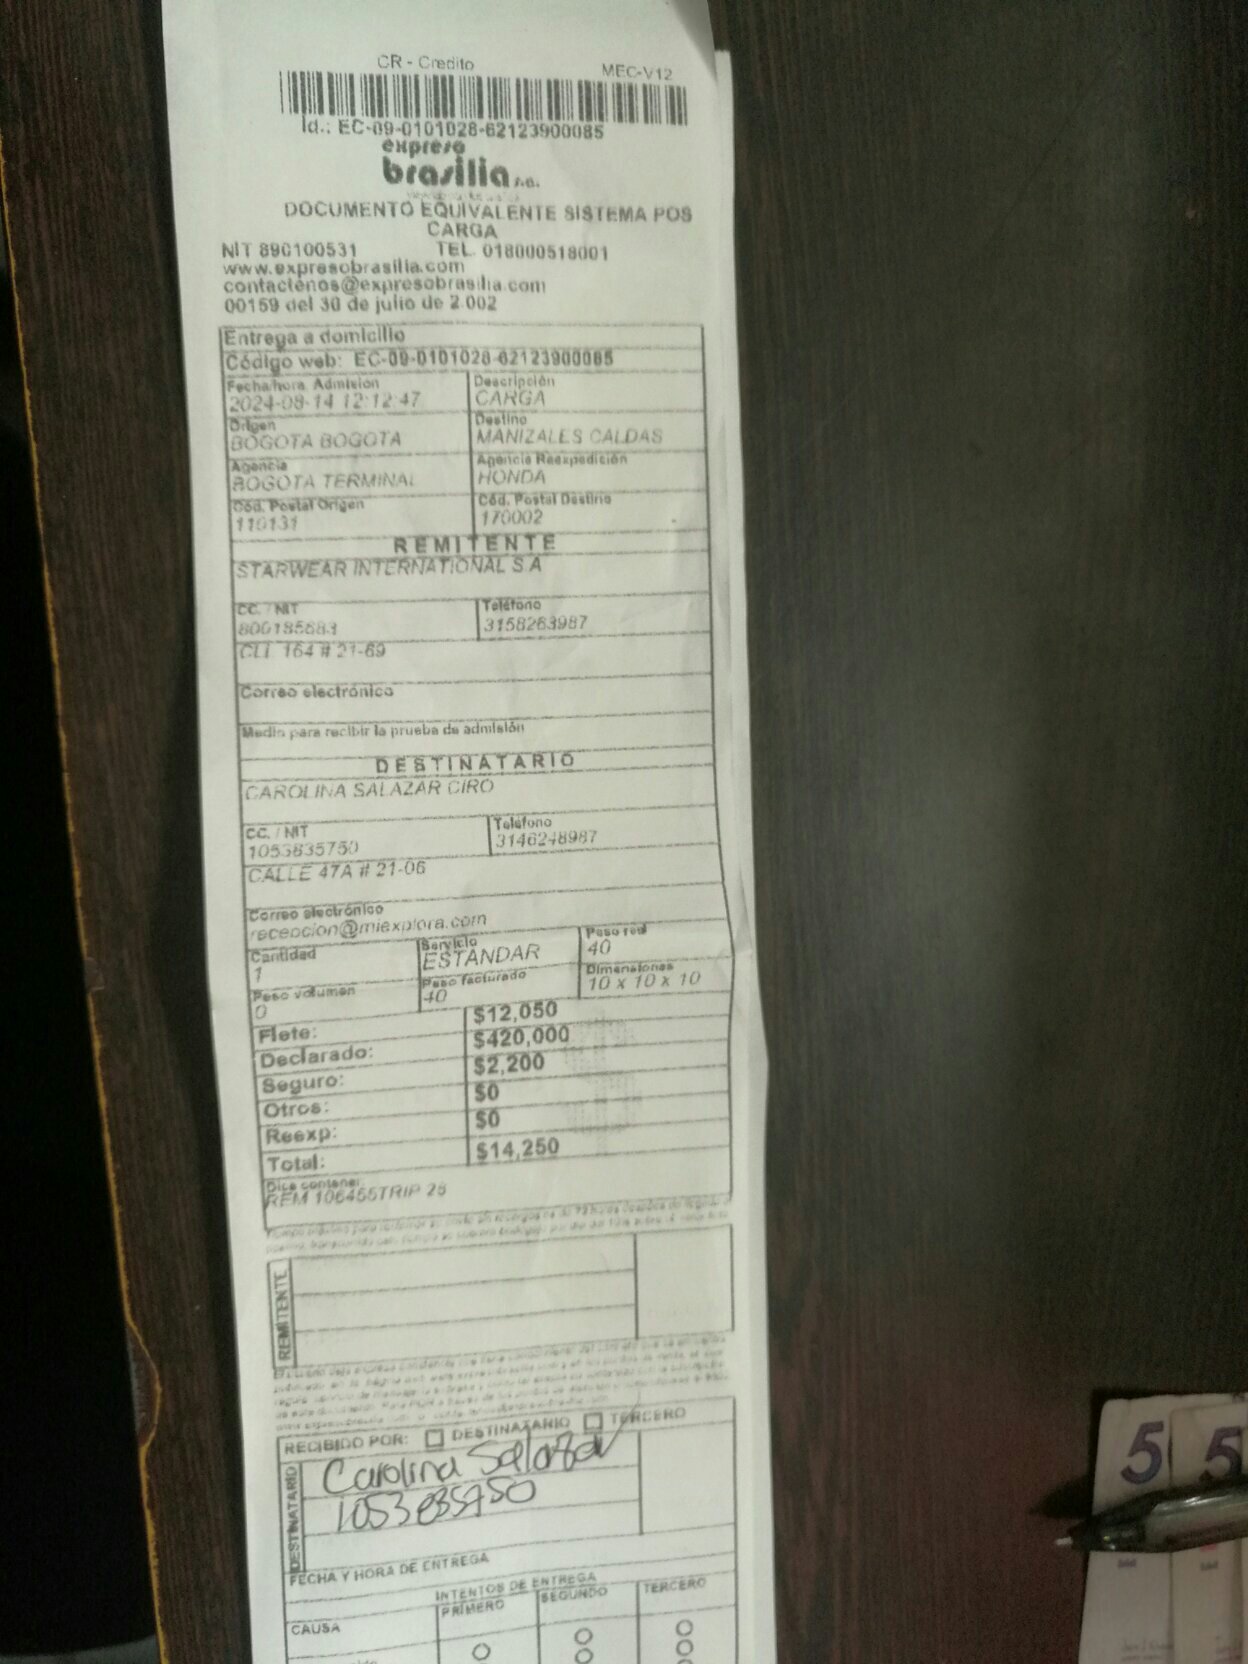 CR - Credito MEC-V12
Id.: EC-09-0101028-62123900085
expreso
brasilia s.a.
DOCUMENTO EQUIVALENTE SISTEMA POS
CARGA
NIT 890100531 TEL. 018000518001
www.expresobrasilia.com
contactenos@expresobrasilia.com
00159 del 30 de julio de 2.002
Entrega a domicilio
Código web: EC-09-0101028-62123900085
Fecha/hora Admisión Descripción
2024-08-14 12:12:47 CARGA
Origen Destino
BOGOTA BOGOTA MANIZALES CALDAS
Agencia Agencia Reexpedición
BOGOTA TERMINAL HONDA
Cód. Postal Origen Cód. Postal Destino
110131 170002
REMITENTE
STARWEAR INTERNATIONAL S A
CC. / NIT Teléfono
800185683 3158263987
CLL 164 # 21-69
Correo electrónico
Medio para recibir la prueba de admisión
DESTINATARIO
CAROLINA SALAZAR CIRO
CC. / NIT Teléfono
1053835750 3146248987
CALLE 47A # 21-06
Correo electrónico
recepcion@miexplora.com
Cantidad Servicio Peso real
1 ESTANDAR 40
Peso volumen Peso facturado Dimensiones
0 40 10 x 10 x 10
Flete: $12,050
Declarado: $420,000
Seguro: $2,200
Otros: $0
Reexp: $0
Total: $14,250
Dice contener
REM 106455TRIP 28
REMITENTE
RECIBIDO POR: DESTINATARIO TERCERO
DESTINATARIO
Carolina Salazar
1053835750
FECHA Y HORA DE ENTREGA
INTENTOS DE ENTREGA
CAUSA PRIMERO SEGUNDO TERCERO
5 5